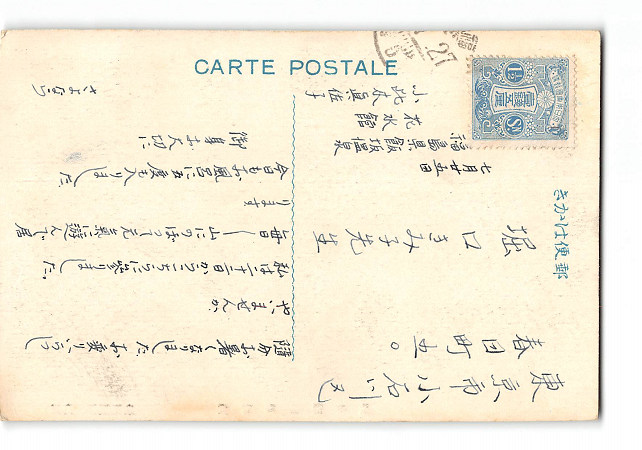 CARTE POSTALE
郵便はかき
東京市小石川区
春日町五〇
堀口きみ子先生
七月廿五日
福島県飯坂温泉
花水館
小此木眞佐子
随分お暑くなりました。お変りいらっし
やいませんか。
私は二十二日からこちらに参りました。
毎日〱山にのぼって元気に遊んで居
ります
今日もお風呂に五度も入りました
御身お大切に
さよなら
1½
Sn.
27